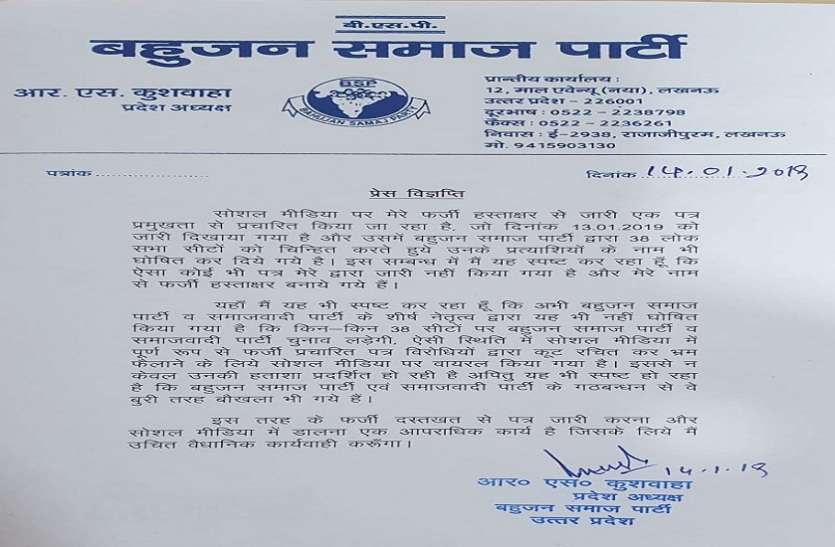 बी.एस.पी.
बहुजन समाज पार्टी
आर. एस. कुशवाहा
प्रदेश अध्यक्ष
BSP
BAHUJAN SAMAJ PARTY
प्रान्तीय कार्यालय :
12, माल एवेन्यू (नया), लखनऊ
उत्तर प्रदेश - 226001
दूरभाष : 0522 - 2238798
फैक्स : 0522 - 2236261
निवास : ई-2938, राजाजीपुरम, लखनऊ
मो. 9415903130
पत्रांक.....................
दिनांक 14.01.2019
प्रेस विज्ञप्ति
सोशल मीडिया पर मेरे फर्जी हस्ताक्षर से जारी एक पत्र
प्रमुखता से प्रचारित किया जा रहा है, जो दिनांक 13.01.2019 को
जारी दिखाया गया है और उसमें बहुजन समाज पार्टी द्वारा 38 लोक
सभा सीटों को चिन्हित करते हुये उनके प्रत्याशियों के नाम भी
घोषित कर दिये गये है। इस सम्बन्ध में मैं यह स्पष्ट कर रहा हूँ कि
ऐसा कोई भी पत्र मेरे द्वारा जारी नहीं किया गया है और मेरे नाम
से फर्जी हस्ताक्षर बनाये गये हैं।
यहाँ मैं यह भी स्पष्ट कर रहा हूँ कि अभी बहुजन समाज
पार्टी व समाजवादी पार्टी के शीर्ष नेतृत्व द्वारा यह भी नहीं घोषित
किया गया है कि किन–किन 38 सीटों पर बहुजन समाज पार्टी व
समाजवादी पार्टी चुनाव लड़ेगी, ऐसी स्थिति में सोशल मीडिया में
पूर्ण रूप से फर्जी प्रचारित पत्र विरोधियों द्वारा कूट रचित कर भ्रम
फैलाने के लिये सोशल मीडिया पर वायरल किया गया है। इससे न
केवल उनकी हताशा प्रदर्शित हो रही है अपितु यह भी स्पष्ट हो रहा
है कि बहुजन समाज पार्टी एवं समाजवादी पार्टी के गठबन्धन से वे
बुरी तरह बौखला भी गये हैं।
इस तरह के फर्जी दस्तखत से पत्र जारी करना और
सोशल मीडिया में डालना एक आपराधिक कार्य है जिसके लिये मैं
उचित वैधानिक कार्यवाही करूँगा।
14.1.19
आर० एस० कुशवाहा
प्रदेश अध्यक्ष
बहुजन समाज पार्टी
उत्तर प्रदेश